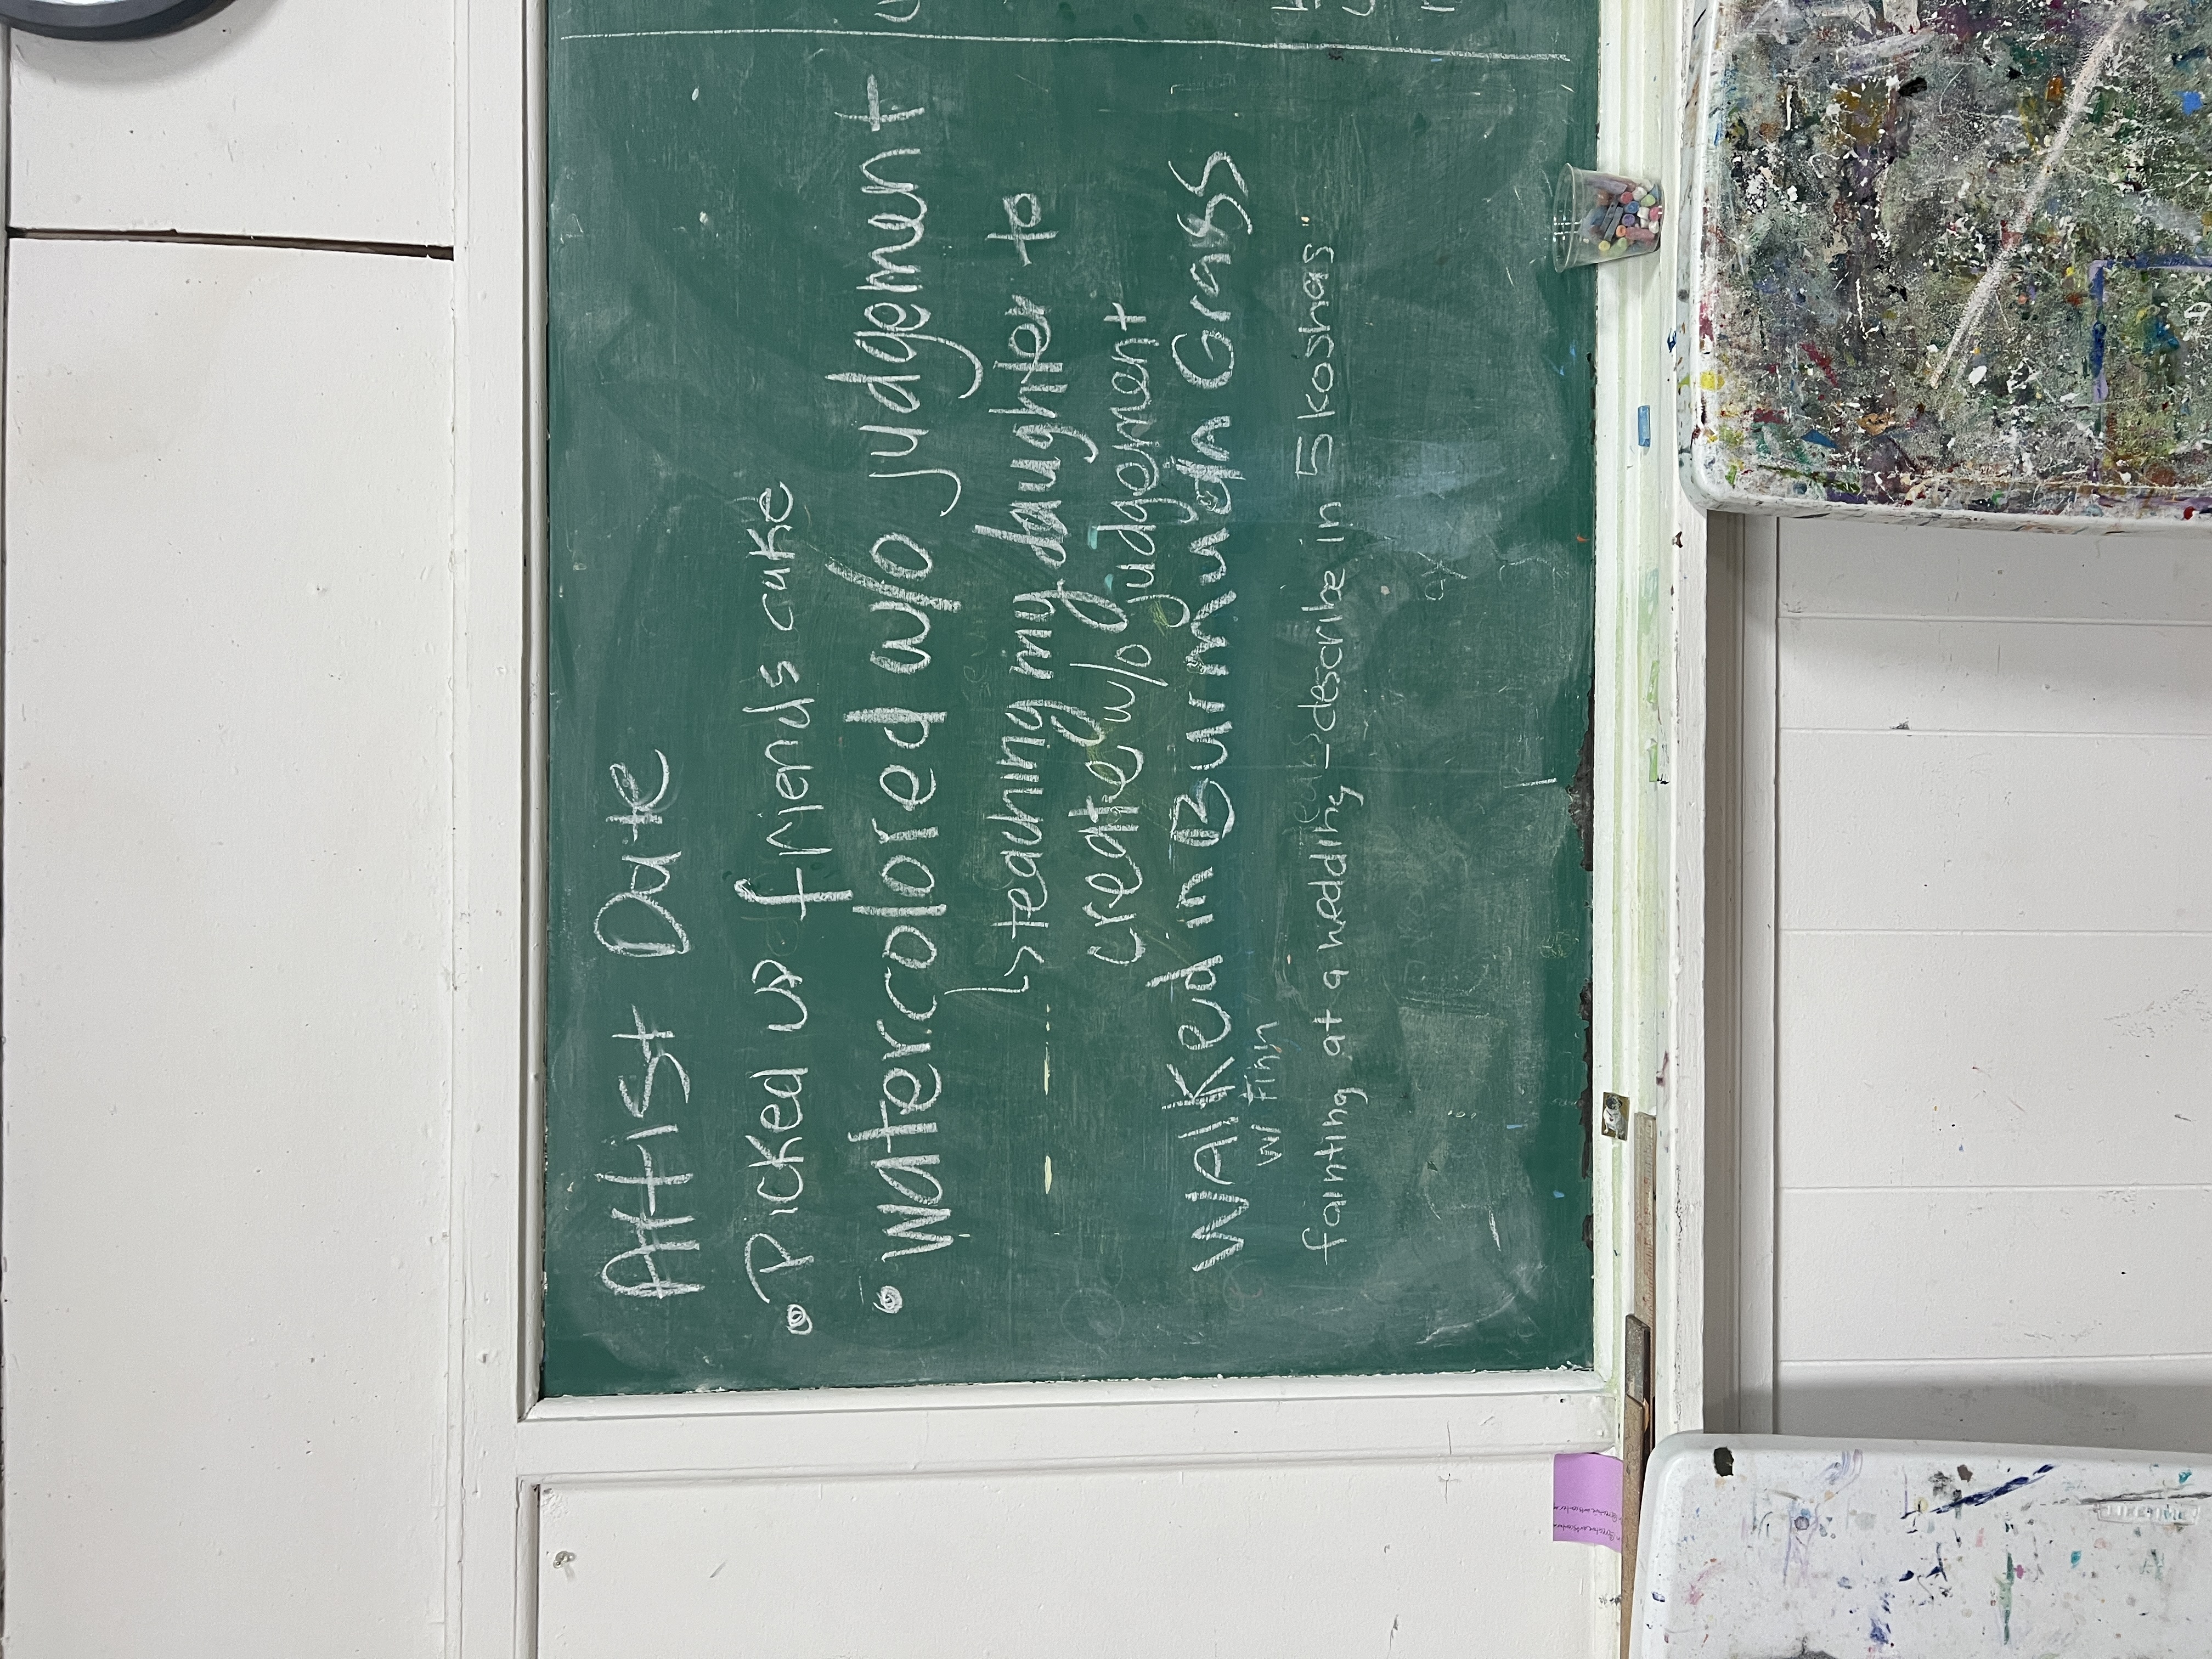 Artist Date
• Picked up friends cake
• Watercolored w/o judgement
↳ teaching my daughter to
create w/o judgement
Walked in Burmuda Grass
w/ Finn
fainting at a wedding - describe in 5 koshas"